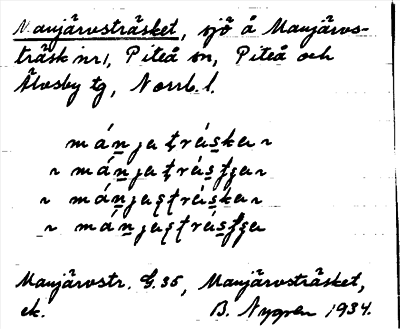 Manjärvsträsket, sjö å Manjärvs-
träsk nr 1, Piteå sn, Piteå och
Älvsby tg, Norrb. l.
mánjatráska ~
~ mánjatrásʃʒa ~
~ mánjaʂtráska ~
~ mánjaʂtrásʃʒa
Manjärvstr. G. 35, Manjärvsträsket,
ek. B. Nygren 1934.